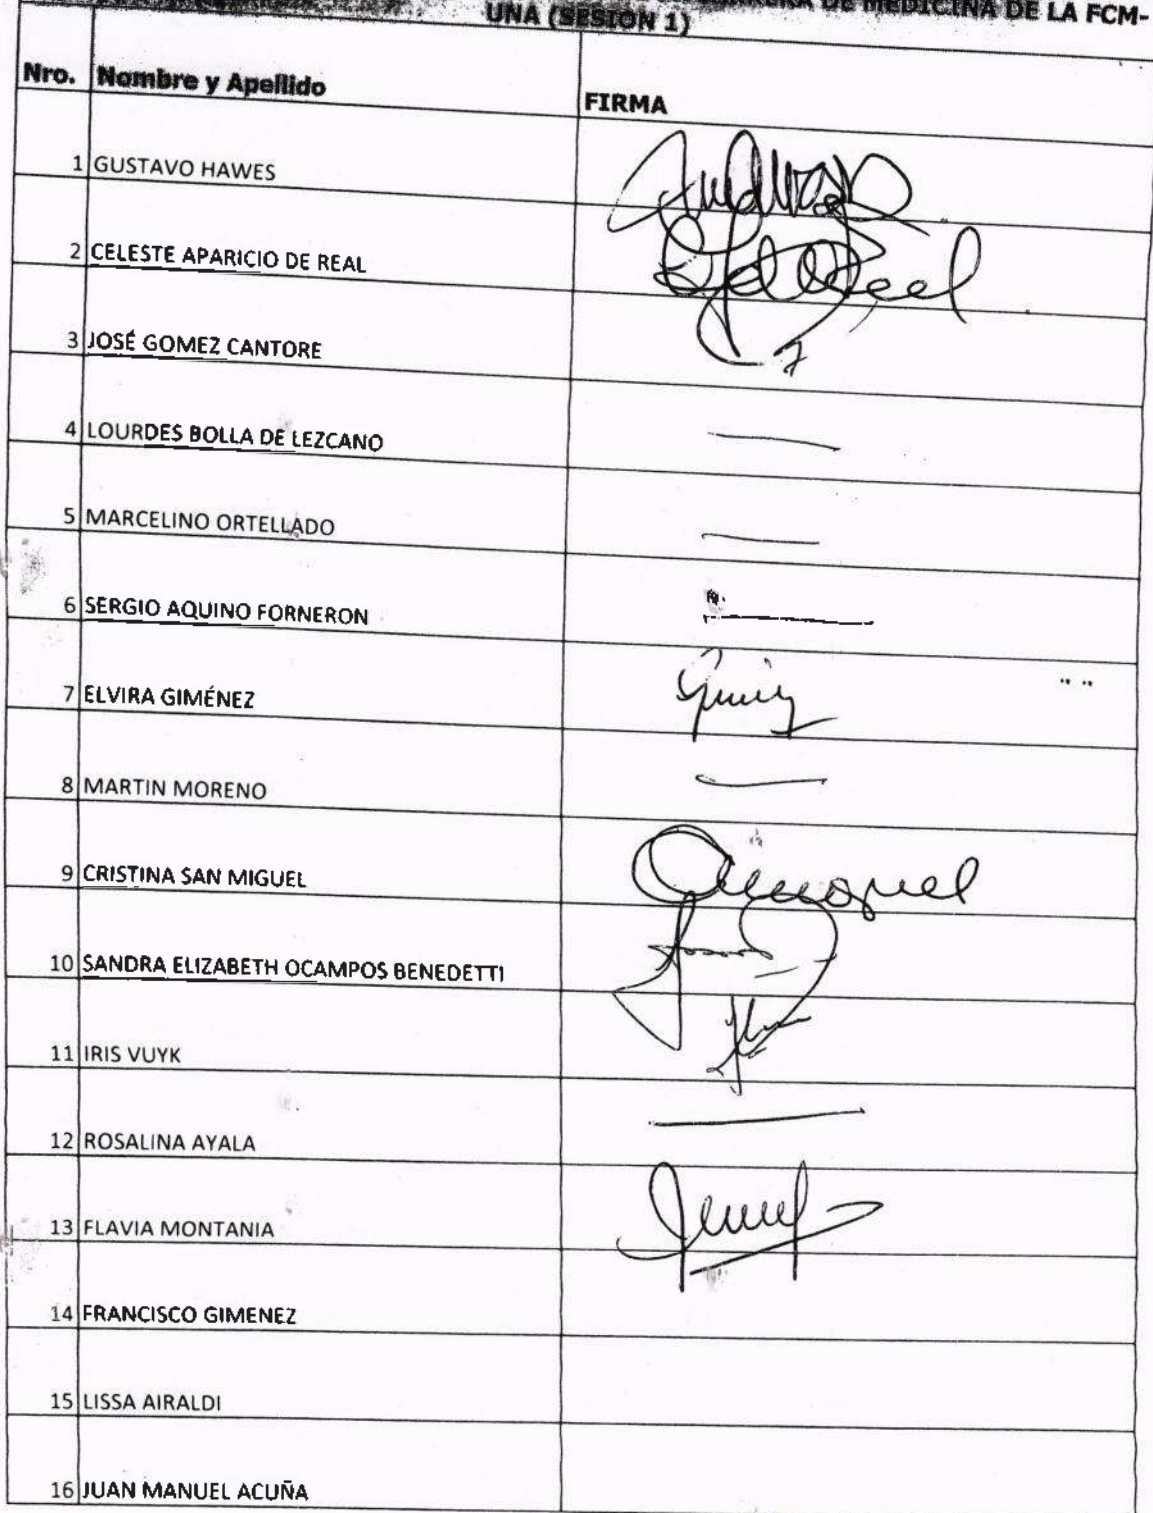 DE MEDICINA DE LA FCM-
UNA (SESION 1)
Nro. Nombre y Apellido FIRMA
1 GUSTAVO HAWES
2 CELESTE APARICIO DE REAL
3 JOSÉ GOMEZ CANTORE
4 LOURDES BOLLA DE LEZCANO
5 MARCELINO ORTELLADO
6 SERGIO AQUINO FORNERON
7 ELVIRA GIMÉNEZ
8 MARTIN MORENO
9 CRISTINA SAN MIGUEL
10 SANDRA ELIZABETH OCAMPOS BENEDETTI
11 IRIS VUYK
12 ROSALINA AYALA
13 FLAVIA MONTANIA
14 FRANCISCO GIMENEZ
15 LISSA AIRALDI
16 JUAN MANUEL ACUÑA